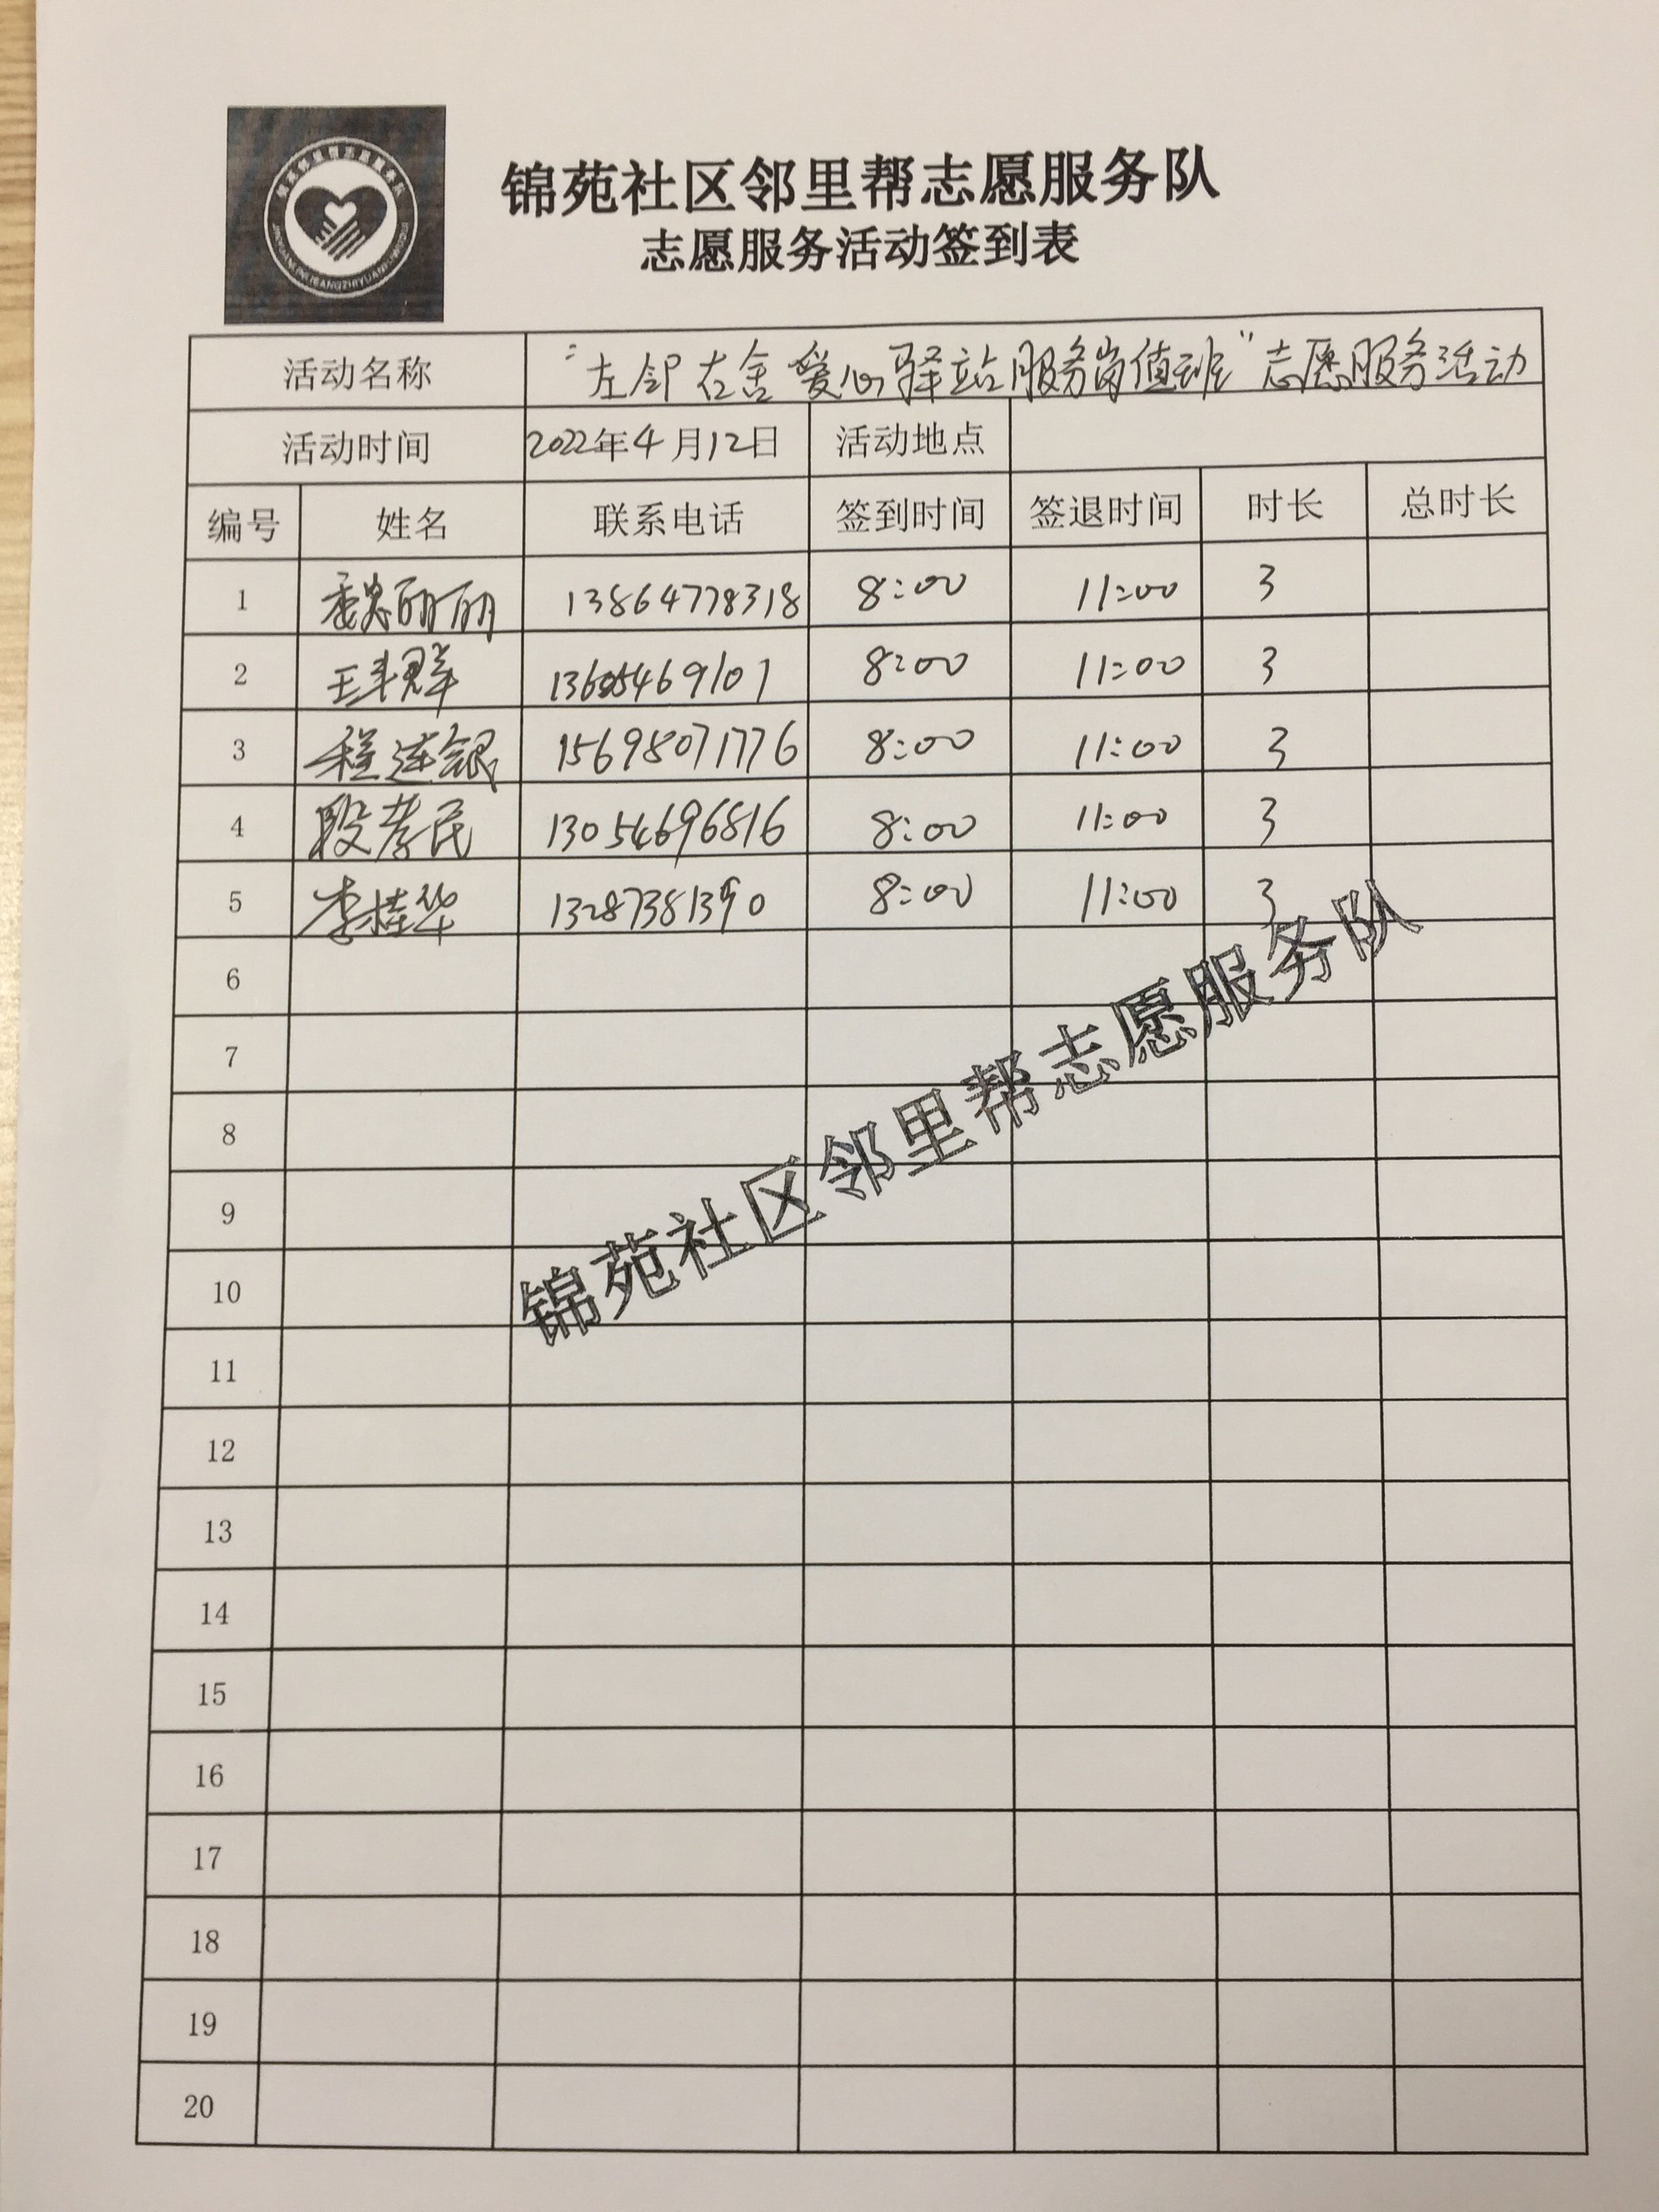 锦苑社区邻里帮志愿服务队
志愿服务活动签到表
活动名称 "左邻右舍爱心驿站服务岗值班"志愿服务活动
活动时间 2022年4月12日 活动地点
编号 姓名 联系电话 签到时间 签退时间 时长 总时长
1 魏丽丽 13864778318 8:00 11:00 3
2 王翠 13605469107 8:00 11:00 3
3 程连银 15698071776 8:00 11:00 3
4 段孝民 13054696816 8:00 11:00 3
5 李桂华 13287381390 8:00 11:00 3
6
7
8
9
10
11
12
13
14
15
16
17
18
19
20
锦苑社区邻里帮志愿服务队